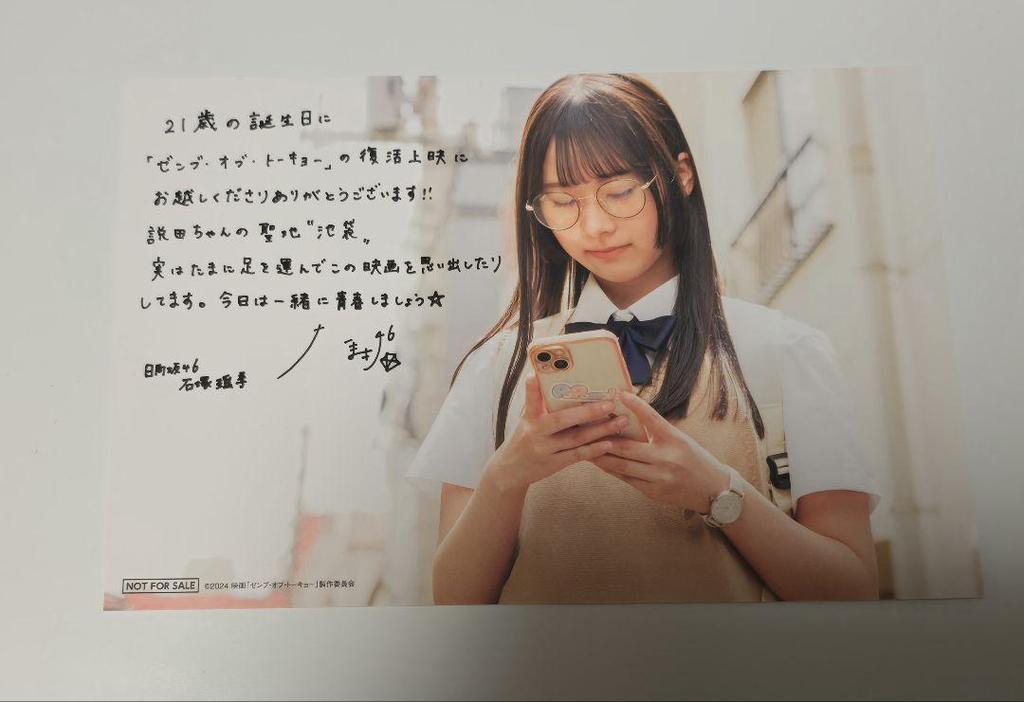 21歳の誕生日に
「ゼンブ・オブ・トーキョー」の復活上映に
お越しくださりありがとうございます!!
説田ちゃんの聖地〝池袋〟
実はたまに足を運んでこの映画を思い出したり
してます。今日は一緒に青春しましょう☆
46
日向坂46
石塚瑶季
NOT FOR SALE ©2024 映画「ゼンブ・オブ・トーキョー」製作委員会